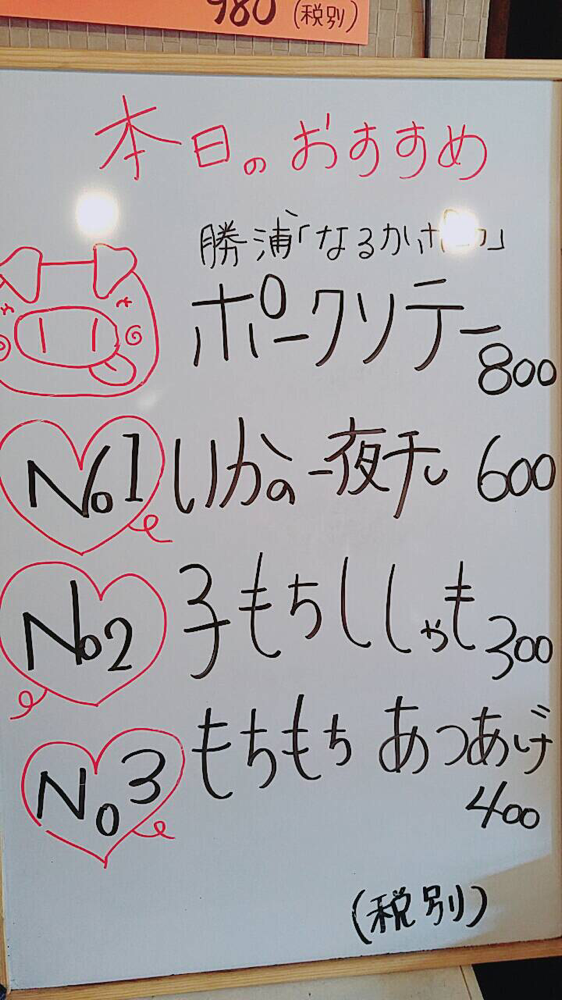 980 (税別)
本日のおすすめ
勝浦「なるかポ
ポークソテー
800
No1 いかの一夜干し 600
No2 子もちししゃも 300
No3 もちもち あつあげ
400
(税別)